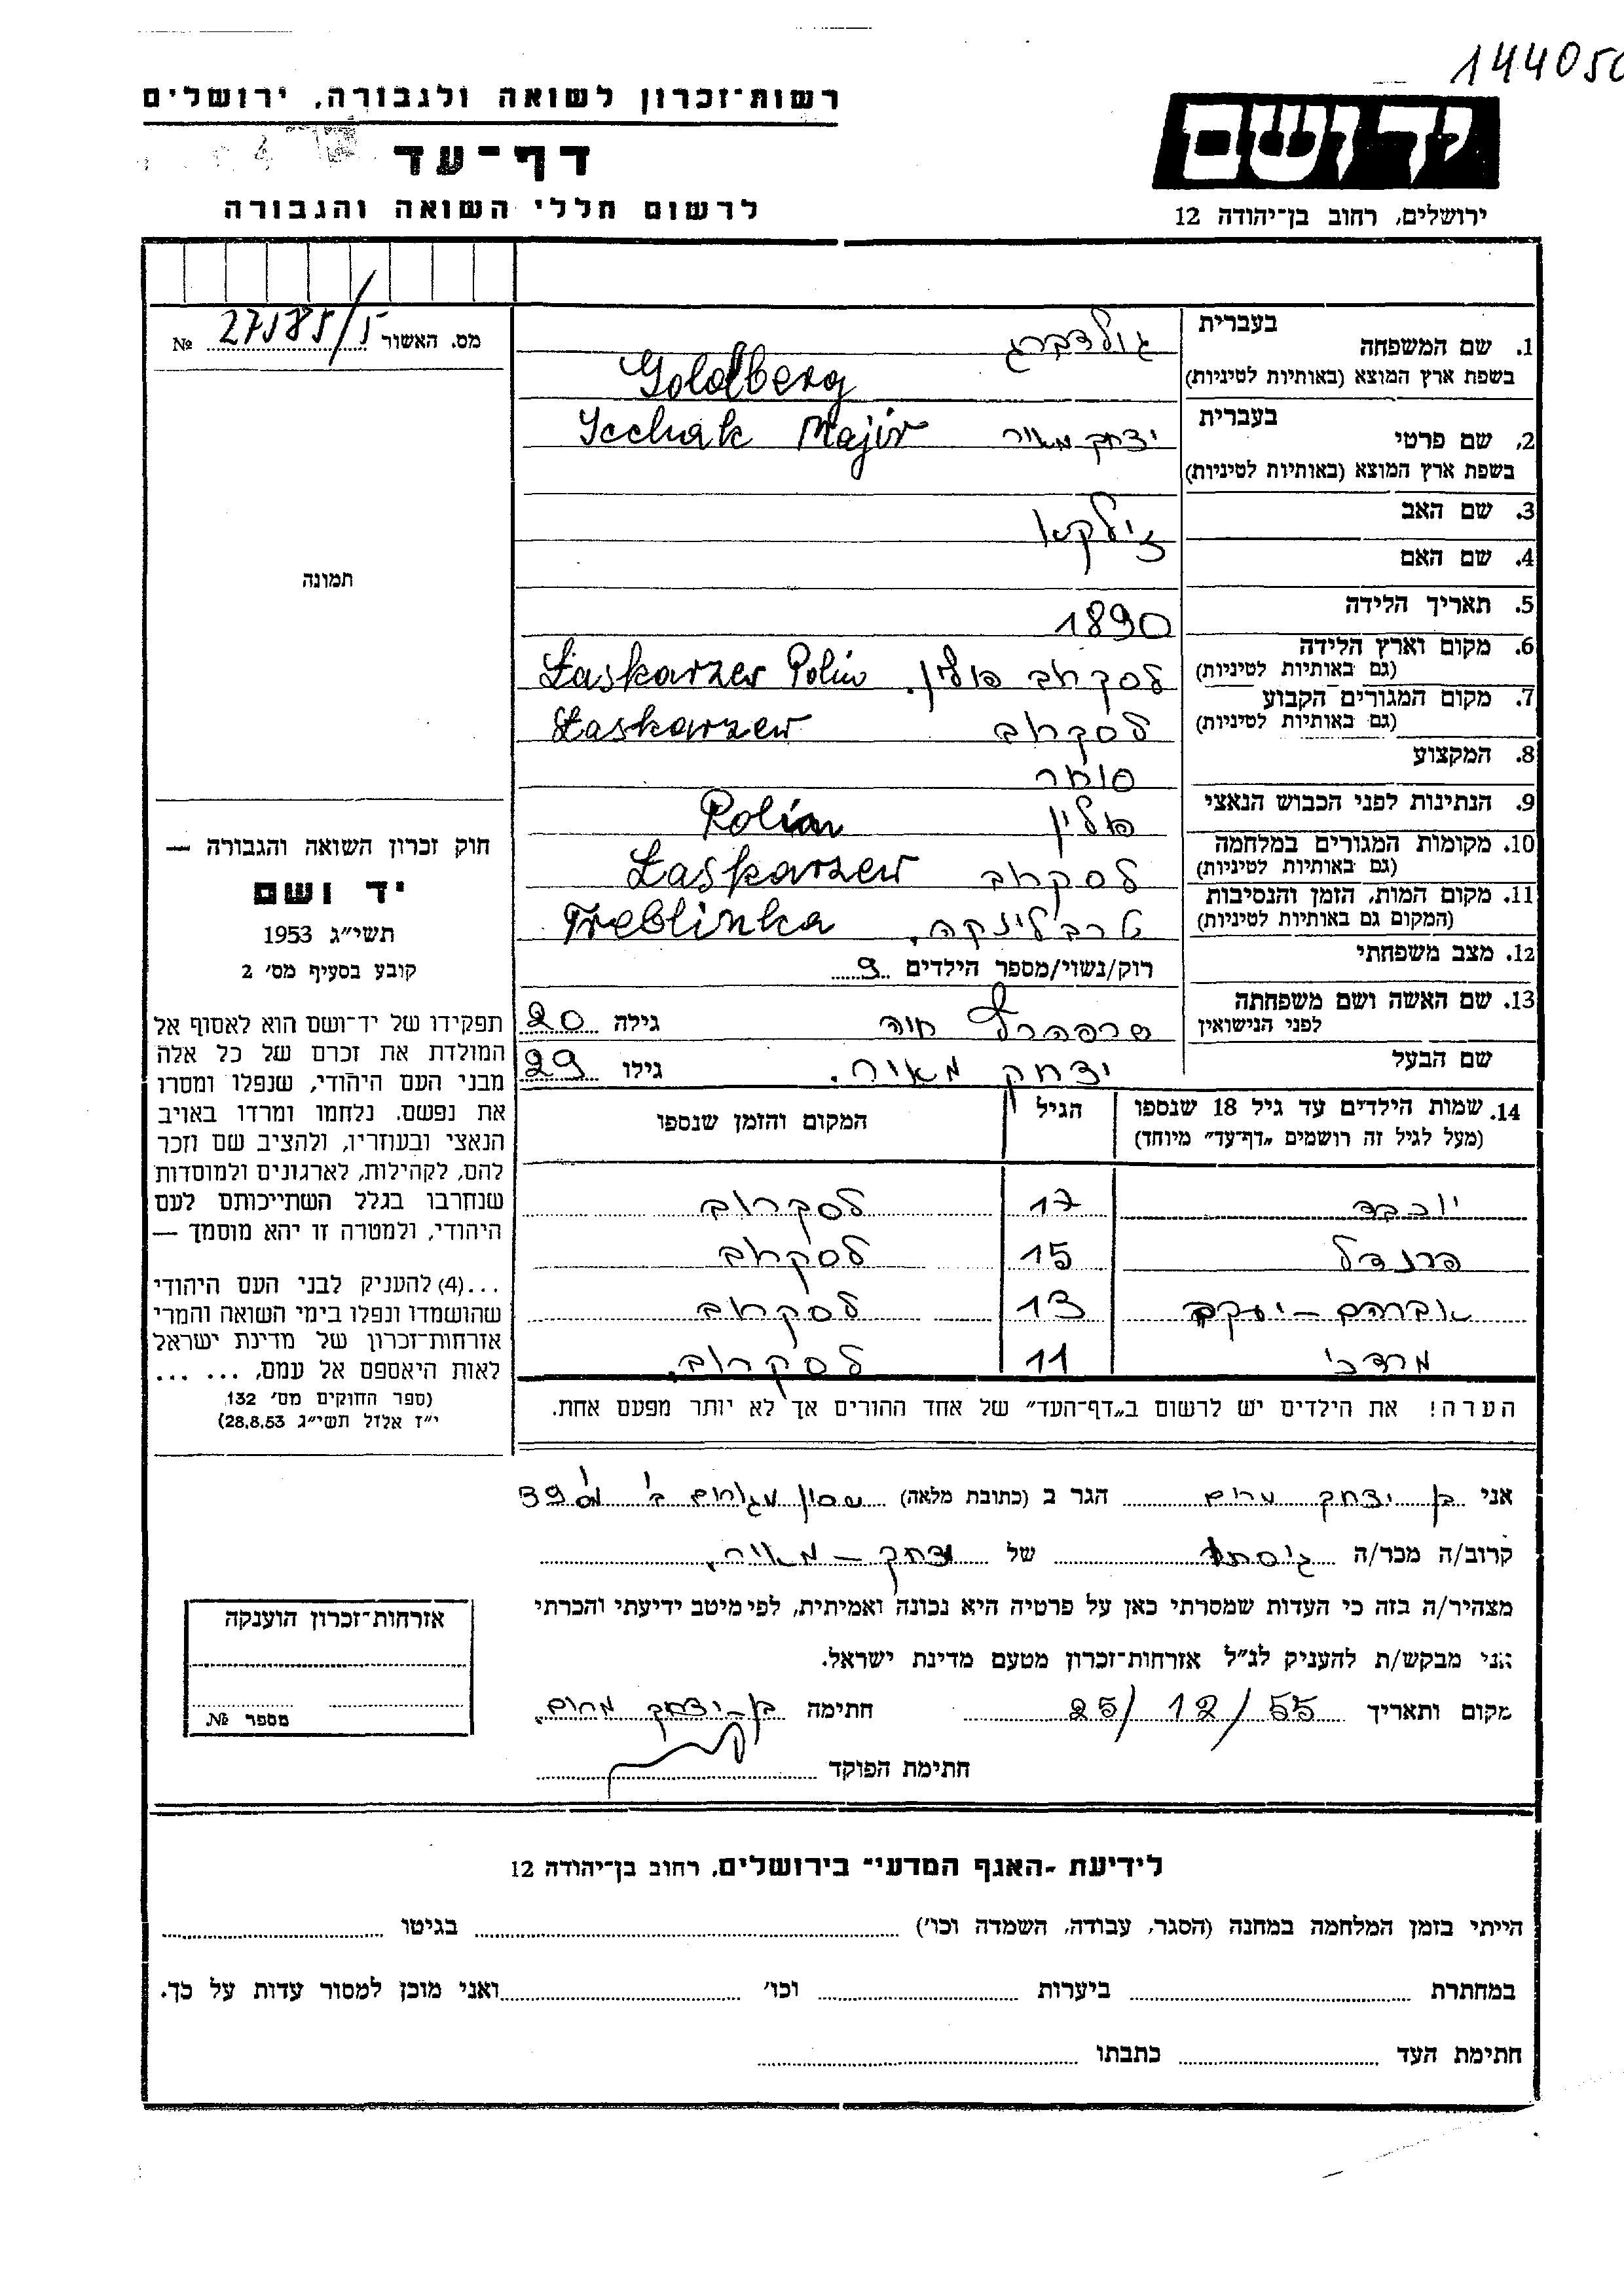 144050
רשות־זכרון לשואה ולגבורה, ירושלים
דף־עד
לרשום חללי השואה והגבורה
יד ושם
ירושלים, רחוב בן־יהודה 12
מס. האשור 27585/5 №
תמונה
חוק זכרון השואה והגבורה —
יד ושם
תשי״ג 1953
קובע בסעיף מס׳ 2
תפקידו של יד־ושם הוא לאסוף אל
המולדת את זכרם של כל אלה
מבני העם היהודי, שנפלו ומסרו
את נפשם, נלחמו ומרדו באויב
הנאצי ובעוזריו, ולהציב שם וזכר
להם, לקהילות, לארגונים ולמוסדות
שנחרבו בגלל השתייכותם לעם
היהודי, ולמטרה זו יהא מוסמך —
...(4) להעניק לבני העם היהודי
שהושמדו ונפלו בימי השואה והמרי
אזרחות־זכרון של מדינת ישראל
לאות היאספם אל עמם, ... ...
(ספר החוקים מס׳ 132,
י״ז אלול תשי״ג 28.8.53)
1. שם המשפחה
בעברית גולדברג
בשפת ארץ המוצא (באותיות לטיניות) Goldberg
2. שם פרטי
בעברית יצחק מאיר
בשפת ארץ המוצא (באותיות לטיניות) Icchak Majir
3. שם האב
4. שם האם
5. תאריך הלידה 1890
6. מקום וארץ הלידה לסקרוב פולין. Łaskarzew Polin
(גם באותיות לטיניות)
7. מקום המגורים הקבוע לסקרוב Łaskarzew
(גם באותיות לטיניות)
8. המקצוע סוחר
9. הנתינות לפני הכבוש הנאצי פולין Polin
10. מקומות המגורים במלחמה לסקרוב Łaskarzew
(גם באותיות לטיניות)
11. מקום המות, הזמן והנסיבות טרבלינקה. Treblinka
(המקום גם באותיות לטיניות)
12. מצב משפחתי רוק/נשוי/מספר הילדים 9
13. שם האשה ושם משפחתה חוה גילה 20
לפני הנישואין
שם הבעל יצחק מאיר. גילו 29
14. שמות הילדים עד גיל 18 שנספו הגיל המקום והזמן שנספו
(מעל לגיל זה רושמים „דף־עד״ מיוחד)
יוכבד 17 לסקרוב
פרנדל 15 לסקרוב
אברהם – יעקב 13 לסקרוב
מרדכי 11 לסקרוב.
הערה! את הילדים יש לרשום ב„דף־העד״ של אחד ההורים אך לא יותר מפעם אחת.
אני בן יצחק מרים הגר ב (כתובת מלאה) שכון מגורים ב׳ 39
קרוב/ה מכר/ה גיסתו של יצחק – מאיר.
מצהיר/ה בזה כי העדות שמסרתי כאן על פרטיה היא נכונה ואמיתית, לפי מיטב ידיעתי והכרתי
אני מבקש/ת להעניק לנ״ל אזרחות־זכרון מטעם מדינת ישראל.
מקום ותאריך 25/12/55 חתימה בן – יצחק מרים.
חתימת הפוקד
אזרחות־זכרון הוענקה
מספר №
לידיעת „האגף המדעי״ בירושלים, רחוב בן־יהודה 12
הייתי בזמן המלחמה במחנה (הסגר, עבודה, השמדה וכו׳) בגיטו
במחתרת ביערות וכו׳ ואני מוכן למסור עדות על כך.
חתימת העד כתבתו